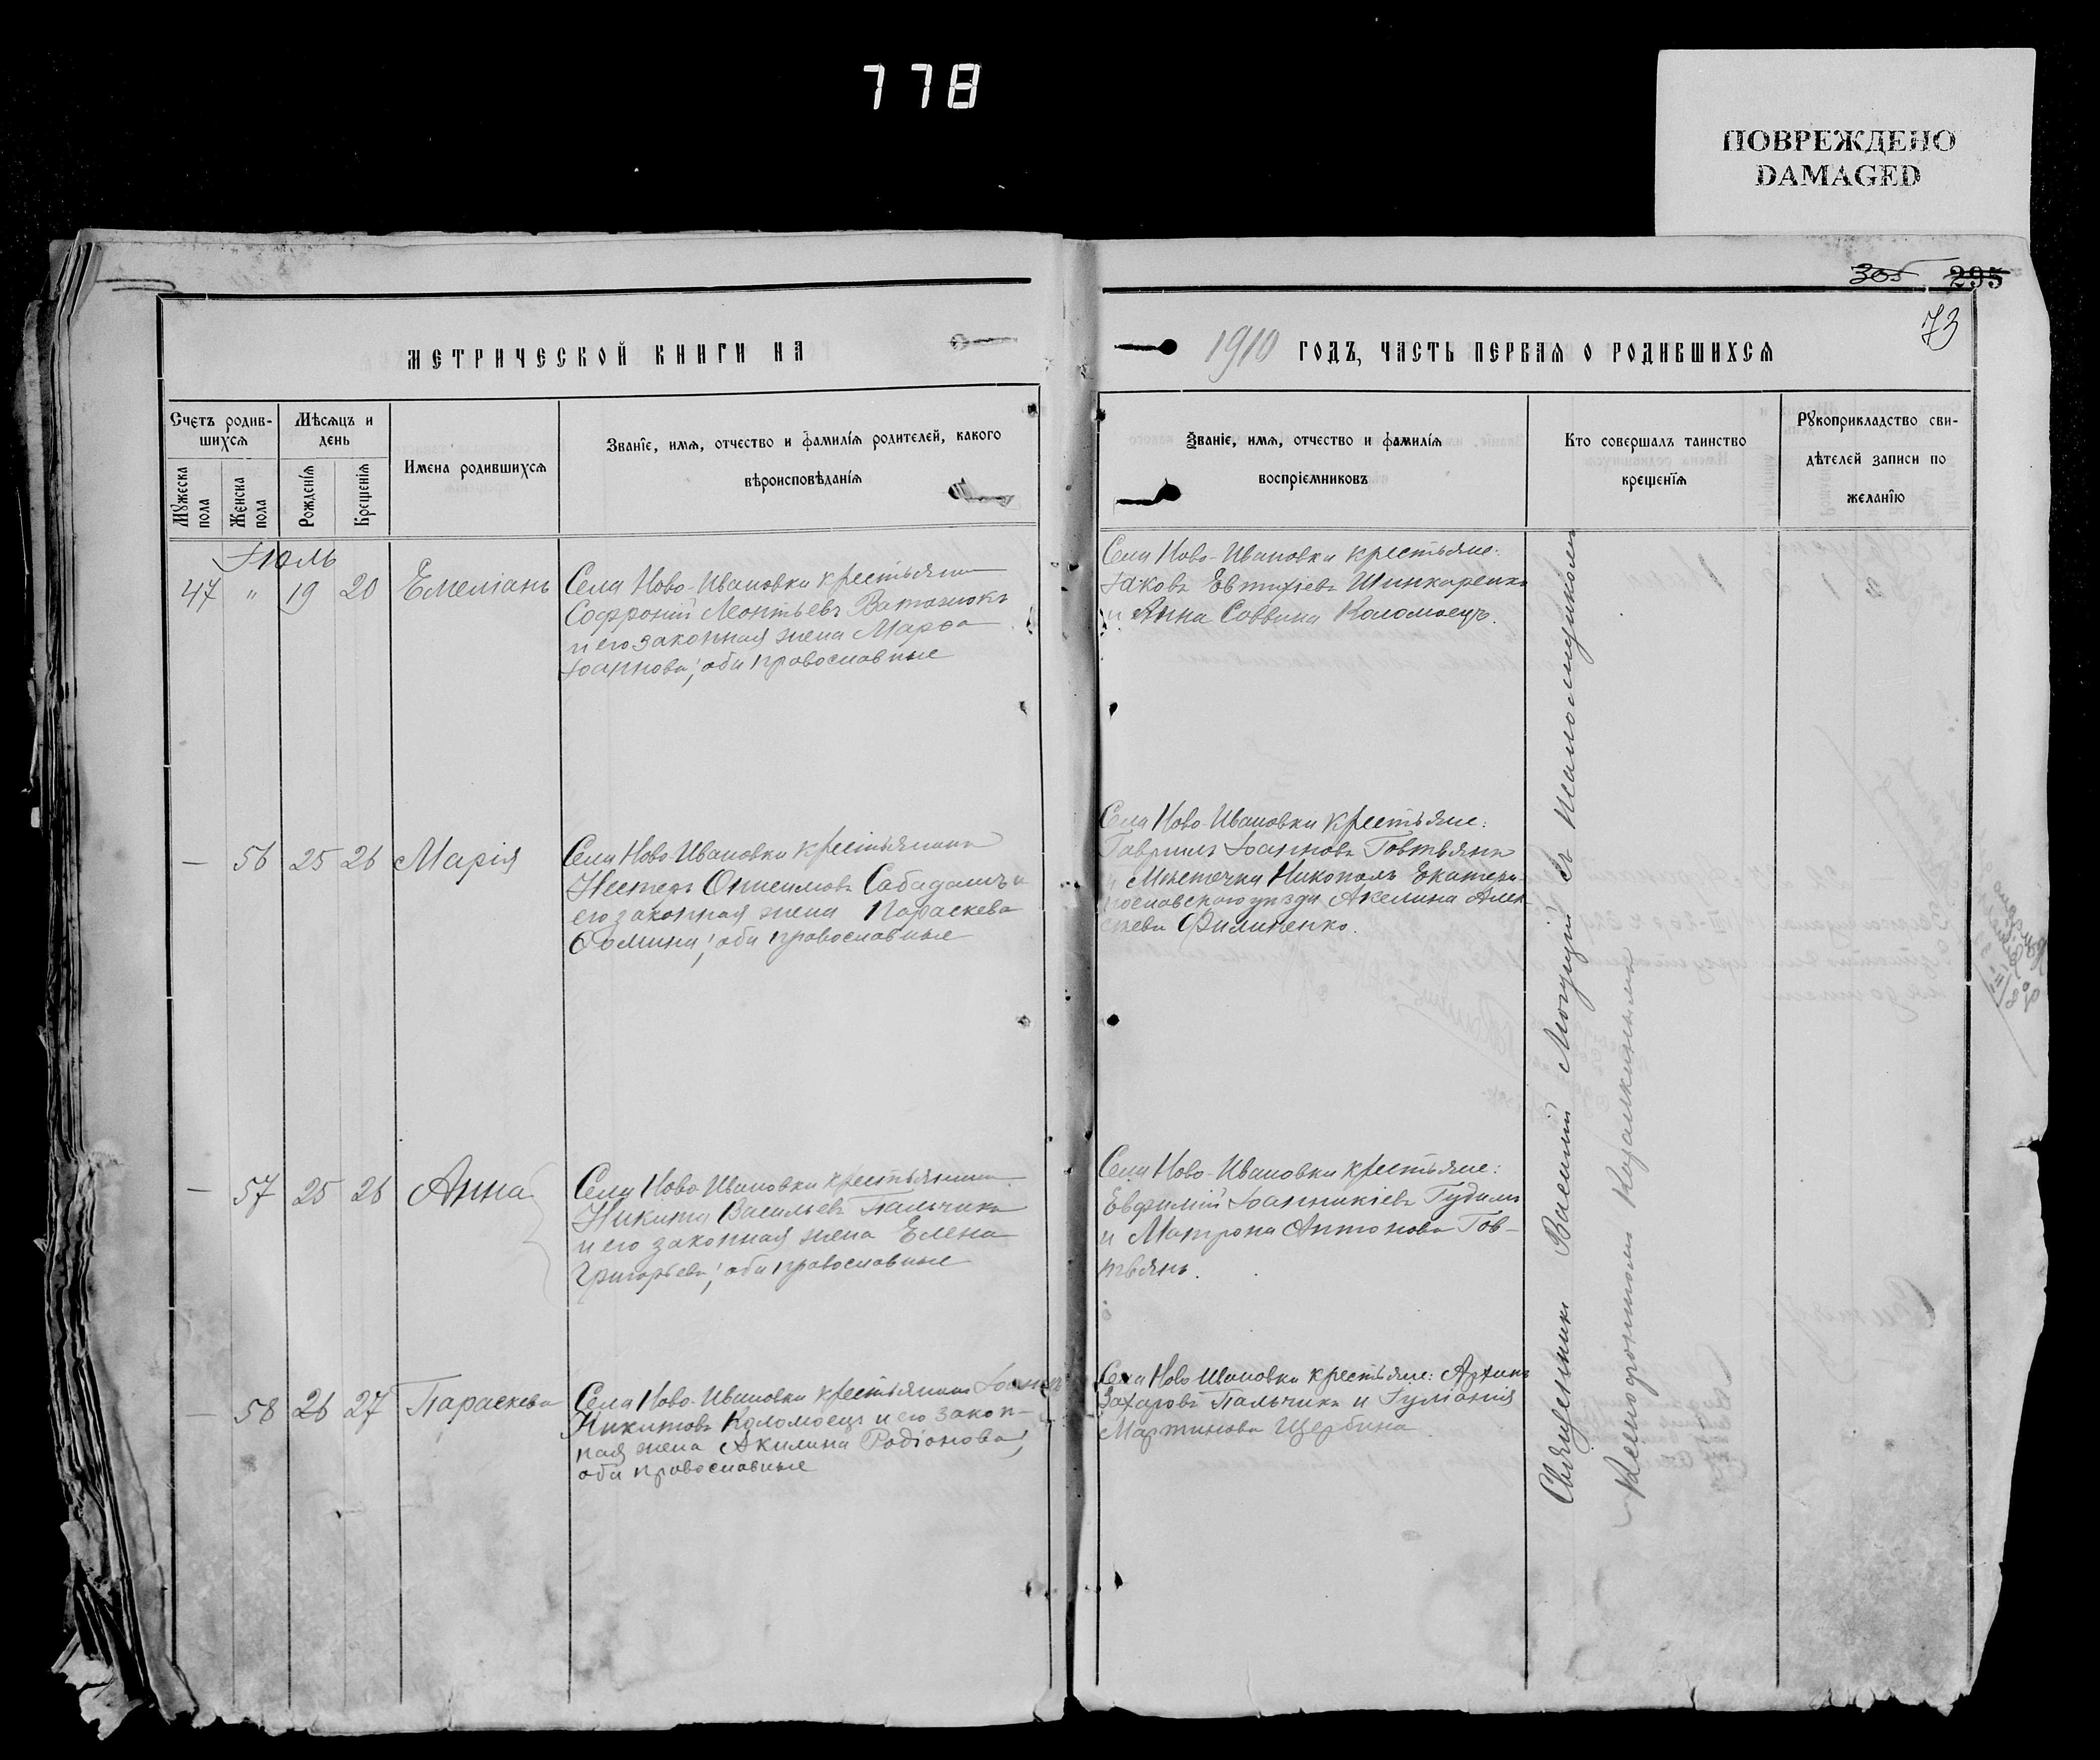 778
ПОВРЕЖДЕНО
DAMAGED
305 295
73
МЕТРИЧЕСКОЙ КНИГИ НА
1910 ГОДЪ, ЧАСТЬ ПЕРВАЯ О РОДИВШИХСЯ
Счетъ родив-
шихся
Мужеска
пола
Женска
пола
Мѣсяцъ и
день
Рожденїя
Крещенїя
Имена родившихся
Званїе, имя, отчество и фамилїя родителей, какого
вѣроисповѣданїя
Званїе, имя, отчество и фамилїя
воспрїемниковъ
Кто совершалъ таинство
крещенїя
Рукоприкладство сви-
дѣтелей записи по
желанїю
Іюль
47 " 19 20 Емеліанъ
Села Ново-Ивановки крестьянинъ
Софроній Леонтьевъ
и его законная жена Марѳа
Іоаннова, оба православные
Села Ново-Ивановки крестьяне:
Іаковъ Евтихіевъ Шинкаренко
и Анна Саввина Коломоецъ.
— 56 25 26 Марія
Села Ново-Ивановки крестьянинъ
Нестеръ Онисимовъ Сабадашъ и
его законная жена Параскева
Ѳомина, оба православные
Села Ново-Ивановки крестьяне:
Гавриилъ Іоанновъ Говтьянъ
и Мѣстечка Никополь Екатери-
нославскаго уѣзда Акелина Алек
сѣева Филипенко.
— 57 25 26 Анна
Села Ново-Ивановки крестьянинъ
Никита Васильевъ Пальчикъ
и его законная жена Елена
Григорьева, оба православные
Села Ново-Ивановки крестьяне:
Евфимій Іоанникіевъ Гудимъ
и Матрона Антонова Гов-
тьянъ.
— 58 26 27 Параскева
Села Ново-Ивановки крестьянинъ Іоаннъ
Никитовъ Коломоецъ и его закон-
ная жена Акилина Родіонова,
оба православные
Села Ново Ивановки крестьяне: Архипъ
Захаровъ Пальчикъ и Іуліанія
Мартинова Щербина.
Священникъ Василій Могущій съ Псаломщикомъ